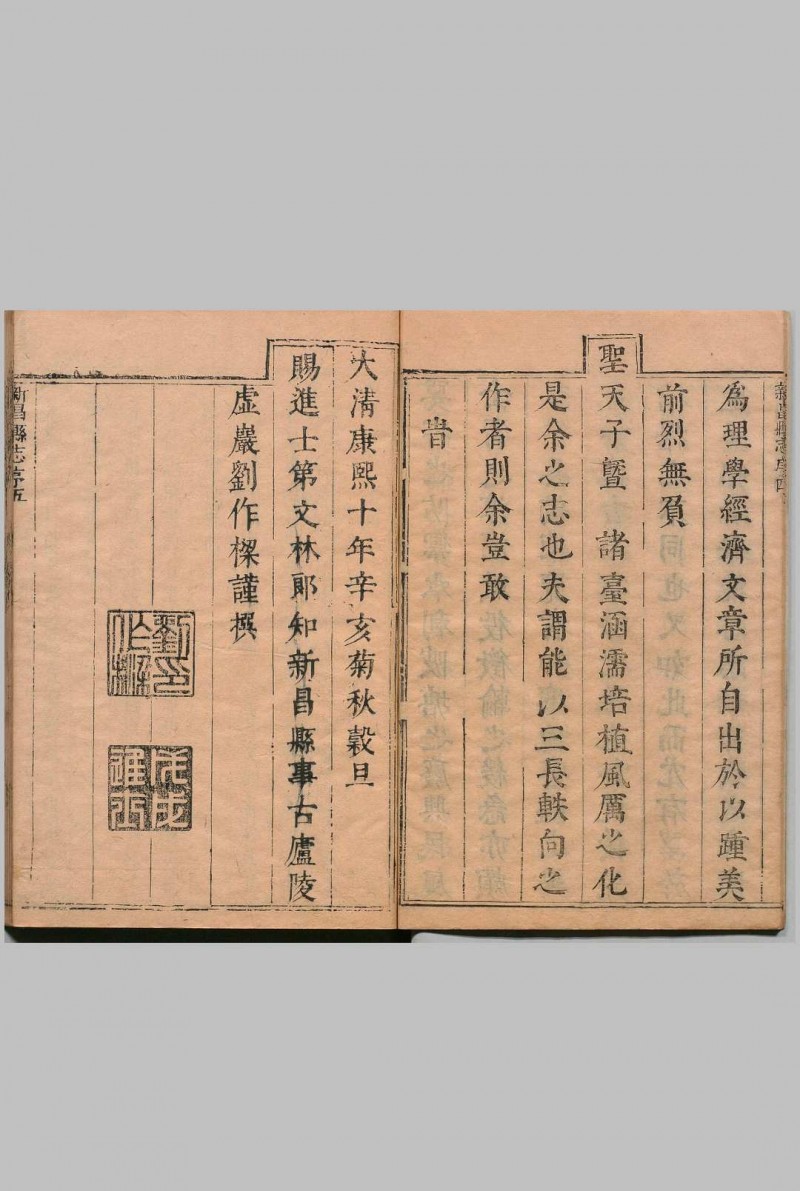 新昌縣志序四
為理學經濟文章所自出於以踵美
前烈無負
聖天子暨 諸臺涵濡培植風厲之化
是余之志也夫謂能以三長軼向之
作者則余豈敢
旹
大清康熙十年辛亥菊秋穀旦
賜進士第文林郎知新昌縣事古廬陵
虛巖劉作樑謹撰
劉作樑印
新昌縣志序五